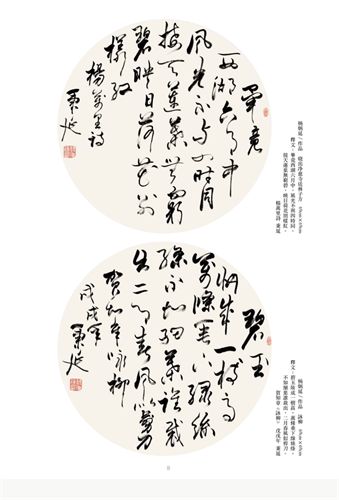 楊炳延/作品 曉出淨慈寺送林子方 69cm×69cm
釋文：畢竟西湖六月中，風光不與四時同。
接天蓮葉無窮碧，映日荷花別樣紅。
楊萬里詩 秉延
畢竟
西湖六月中
風光不与四時同
接天蓮葉無窮
碧映日荷花別
樣紅
楊萬里詩
秉延
楊炳延/作品 詠柳 69cm×69cm
釋文：碧玉妝成一樹高，萬條垂下綠絲絛。
不知細葉誰裁出，二月春風似剪刀。
賀知章《詠柳》 戊戌年 秉延
碧玉
妝成一樹高
萬條垂下綠絲
絛不知細葉誰裁
出二月春風似剪
賀知章詠柳
戊戌年
秉延